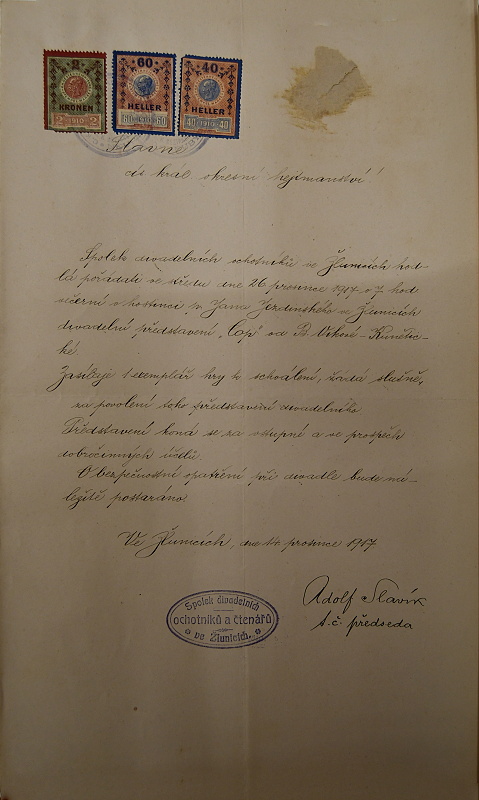 2 60 40
KRONEN HELLER HELLER
2 1910 2 60 1910 60 40 1910 40
Slavné
cís král. okresní hejtmanství!
Spolek divadelních ochotníků ve Žlunicích hod-
lá pořádati ve středu dne 26 prosince 1917 o 7 hod
večerní v hostinci p. Jana Jirdinského ve Žlunicích
divadelní představení „Čáp" od B. Vikové-Kunětic-
ké.
Zasílaje 1 exemplář hry k schválení, žádá slušně,
za povolení toho představení divadelního
Představení koná se za vstupné a ve prospěch
dobročinných účelů.
O bezpečnostní opatření při divadle bude ná-
ležitě postaráno.
Ve Žlunicích, dne 14. prosince 1917
Adolf Slavík
t.č. předseda
Spolek divadelních
ochotníků a čtenářů
ve Žlunicích.